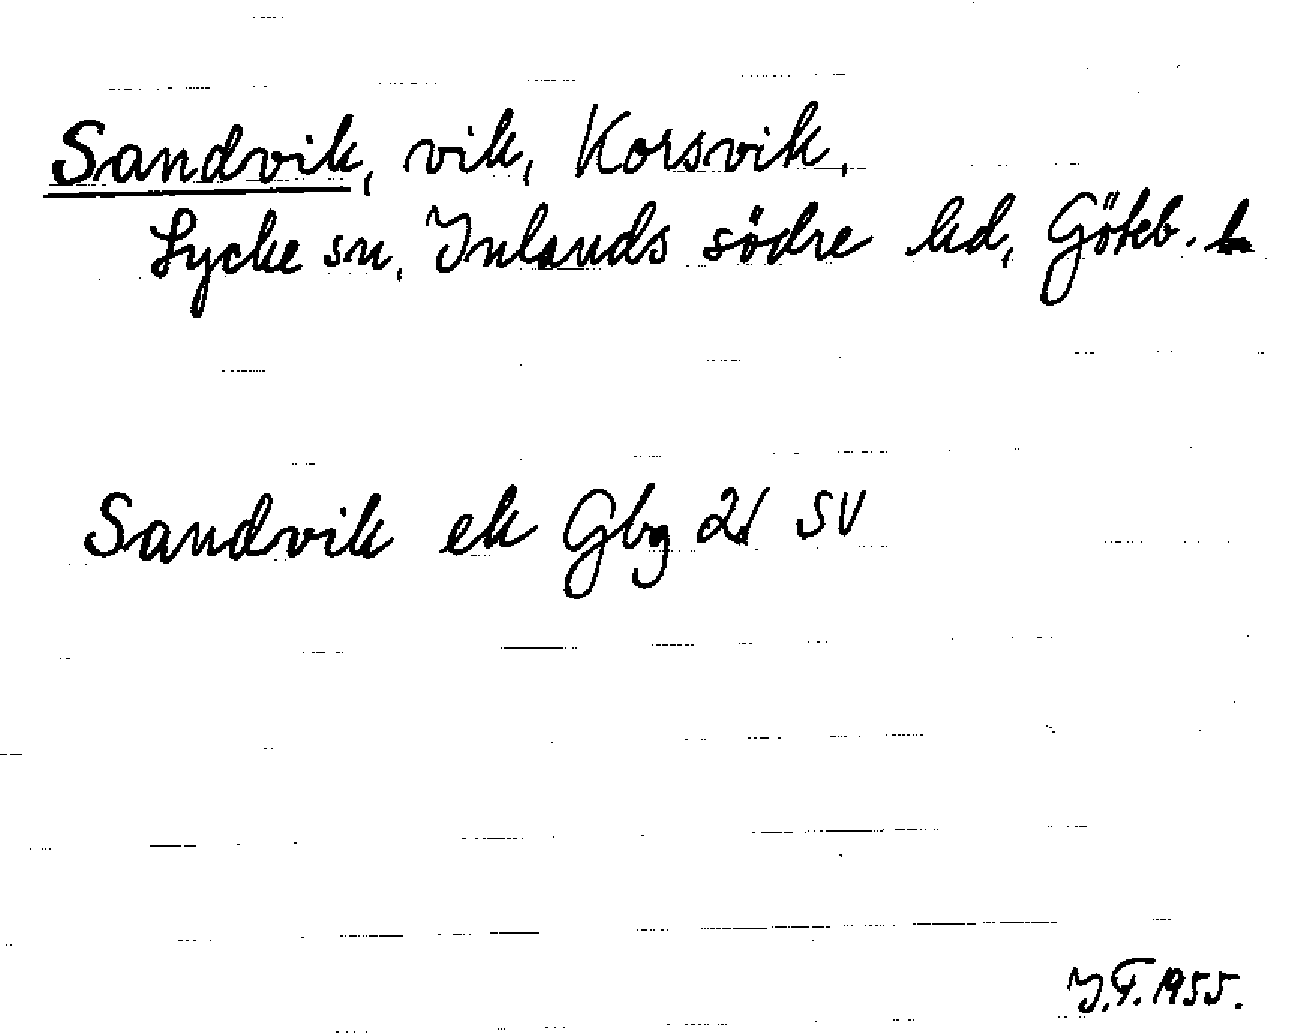 Sandvik, vik, Korsvik,
Lycke sn, Inlands södre hd, Göteb. l
Sandvik ek Gbg 2d SV
Y.F. 1955.